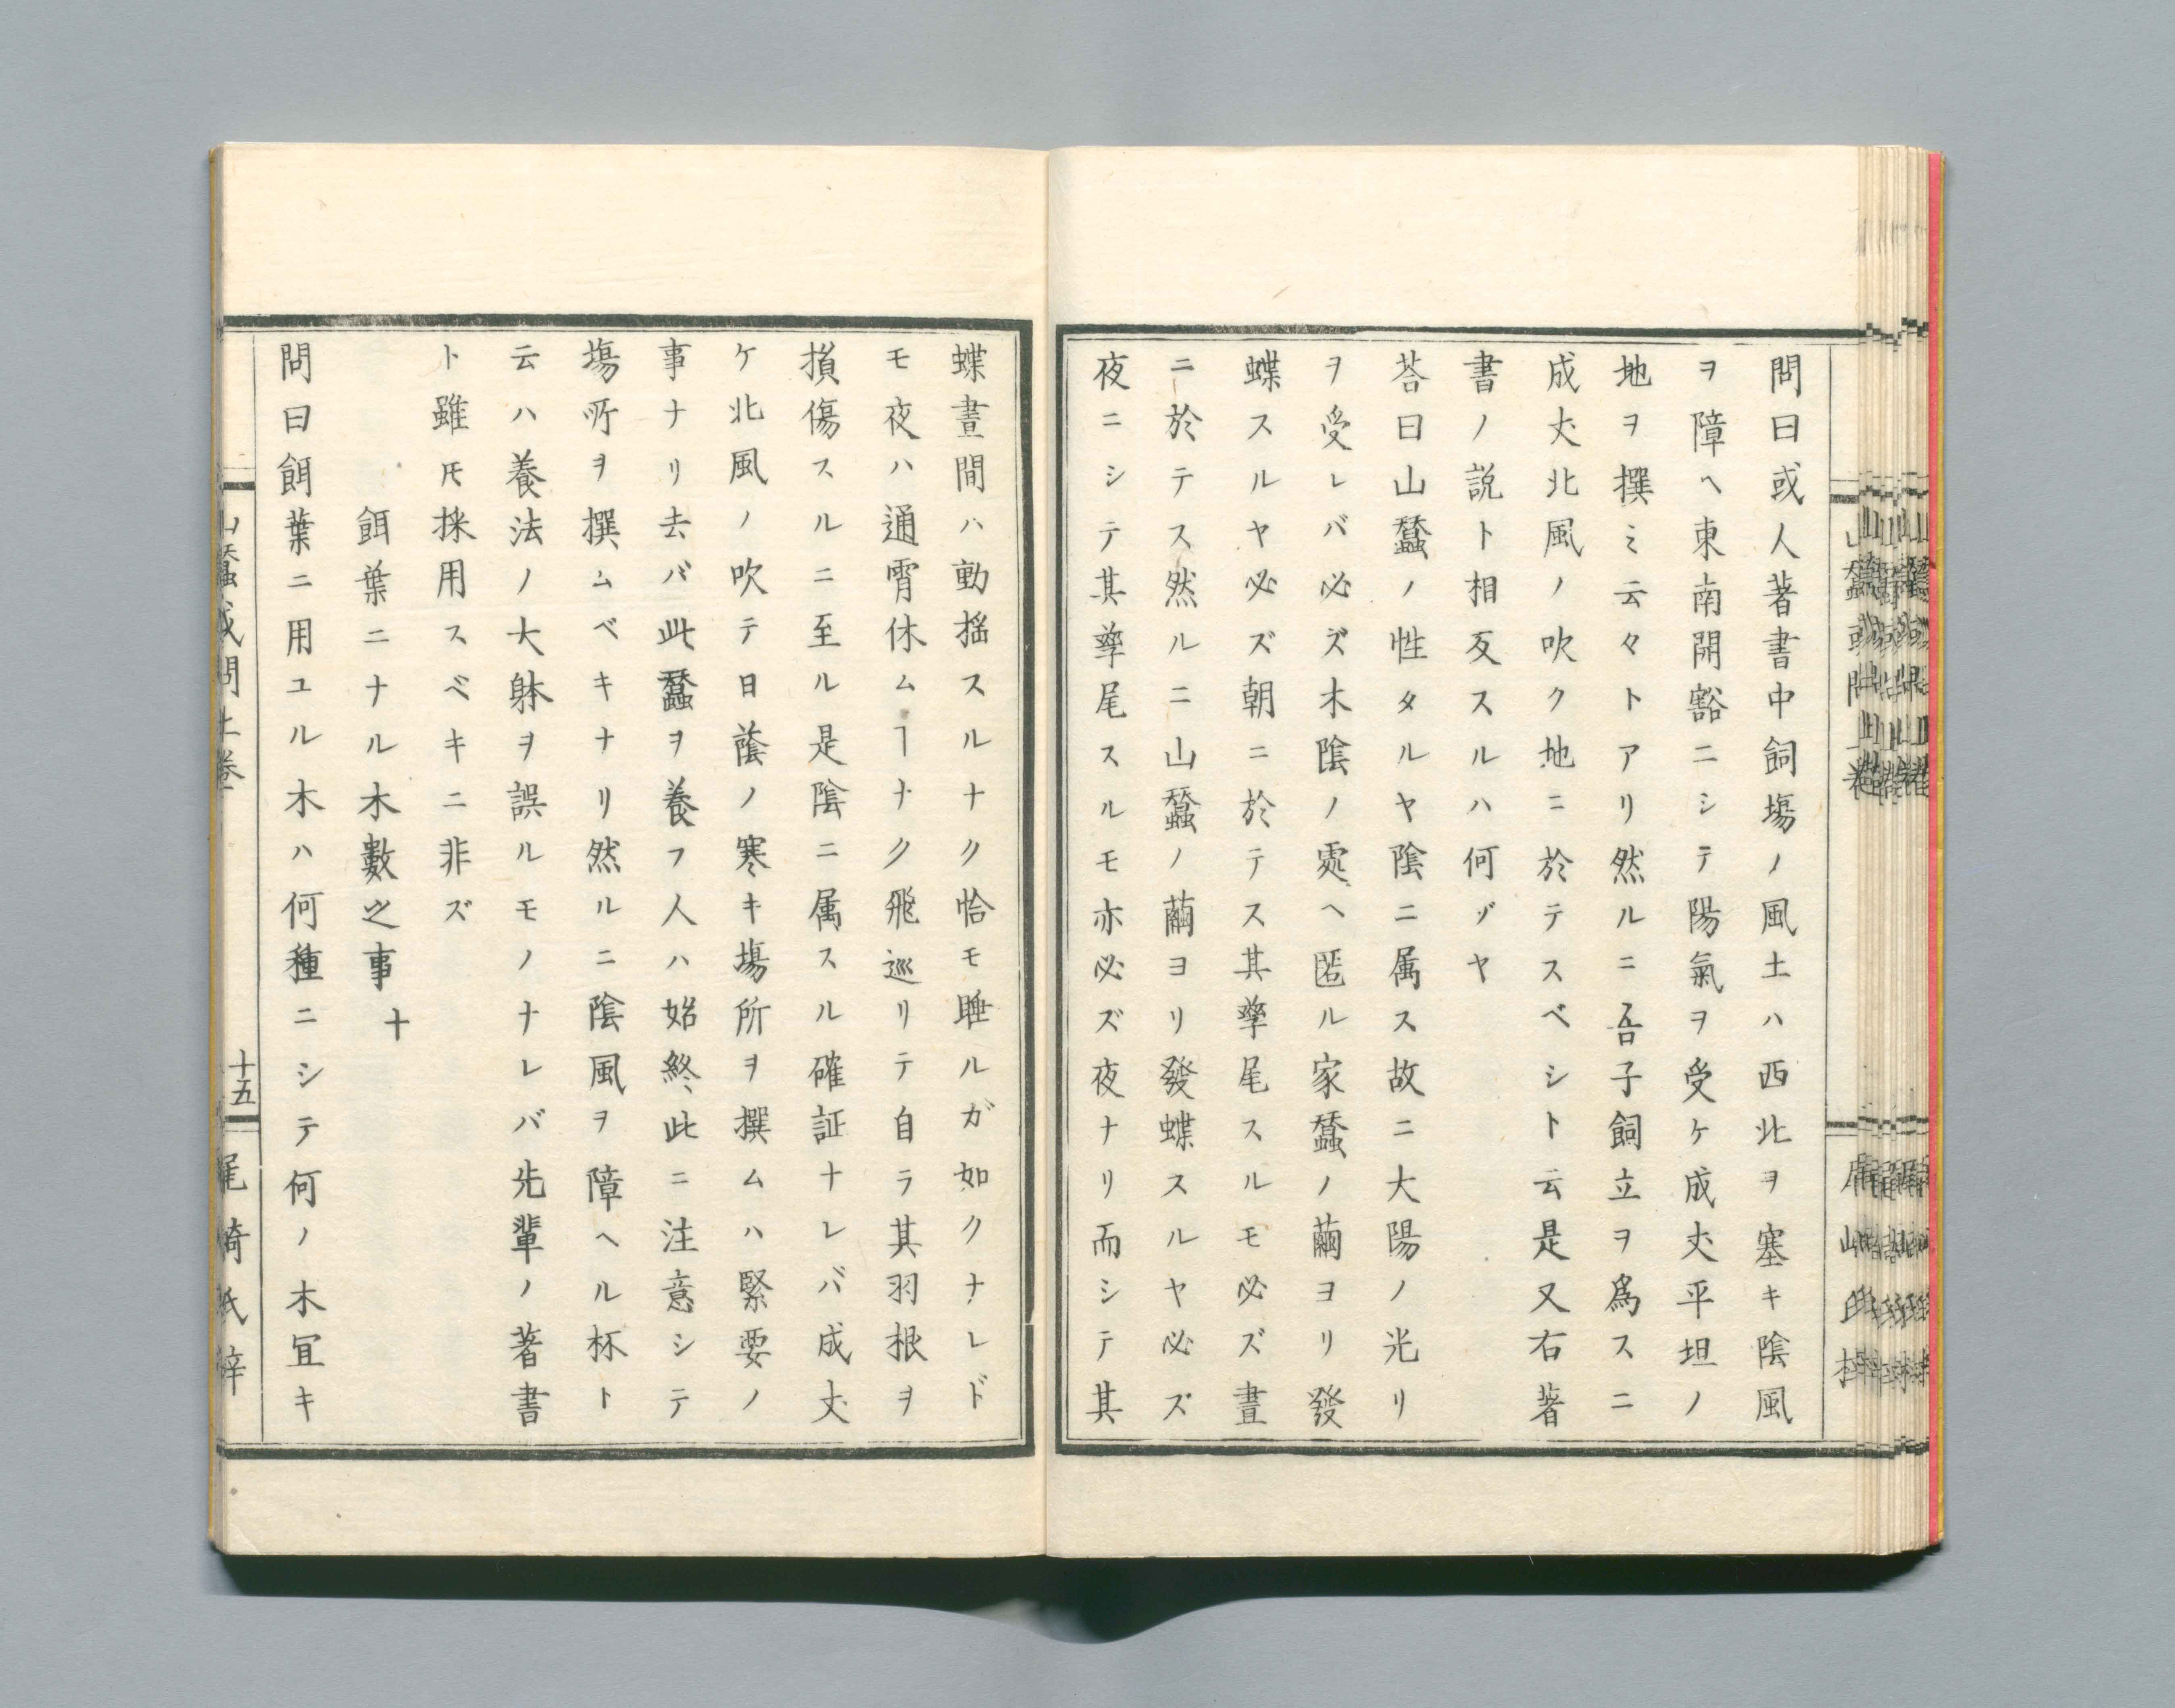 問曰或人著書中飼塲ノ風土ハ西北ヲ塞キ陰風
ヲ障ヘ東南開豁ニシテ陽氣ヲ受ケ成丈平坦ノ
地ヲ撰ミ云々トアリ然ルニ吾子飼立ヲ爲スニ
成丈北風ノ吹ク地ニ於テスベシト云是又右著
書ノ説ト相反スルハ何ゾヤ
荅曰山蠶ノ性タルヤ陰ニ属ス故ニ大陽ノ光リ
ヲ受レバ必ズ木陰ノ處ヘ匿ル家蠶ノ繭ヨリ發
蝶スルヤ必ズ朝ニ於テス其孳尾スルモ必ズ晝
ニ於テス然ルニ山蠶ノ繭ヨリ發蝶スルヤ必ズ
夜ニシテ其孳尾スルモ亦必ズ夜ナリ而シテ其
蝶晝間ハ動揺スルナク恰モ睡ルガ如クナレド
モ夜ハ通霄休ムヿナク飛巡リテ自ラ其羽根ヲ
損傷スルニ至ル是陰ニ属スル確証ナレバ成丈
ケ北風ノ吹テ日蔭ノ寒キ塲所ヲ撰ムハ緊要ノ
事ナリ去バ此蠶ヲ養フ人ハ始終此ニ注意シテ
塲所ヲ撰ムベキナリ然ルニ陰風ヲ障ヘル杯ト
云ハ養法ノ大躰ヲ誤ルモノナレバ先輩ノ著書
ト雖𪜈採用スベキニ非ズ
餌葉ニナル木數之事十
問曰餌葉ニ用ユル木ハ何種ニシテ何ノ木冝キ
山蠶或問上巻
十五
尾崎氏梓